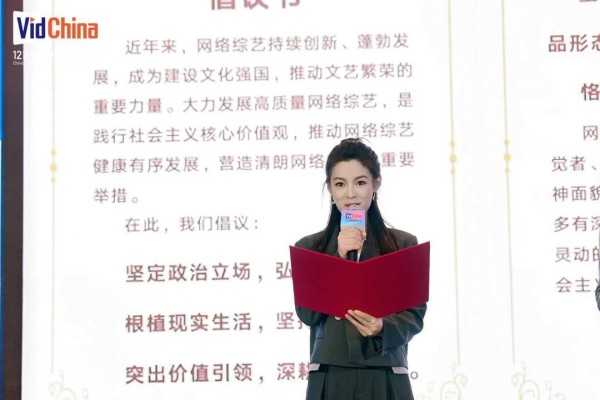 VidChina
12
倡议书
近年来，网络综艺持续创新、蓬勃发
展，成为建设文化强国，推动文艺繁荣的
重要力量。大力发展高质量网络综艺，是
践行社会主义核心价值观，推动网络综艺
健康有序发展，营造清朗网络
重要
举措。
在此，我们倡议：
坚定政治立场，弘
根植现实生活，坚
突出价值引领，深耕
。
品形态
恪
网
觉者、
神面貌
多有深
灵动的
会主义
VidChina